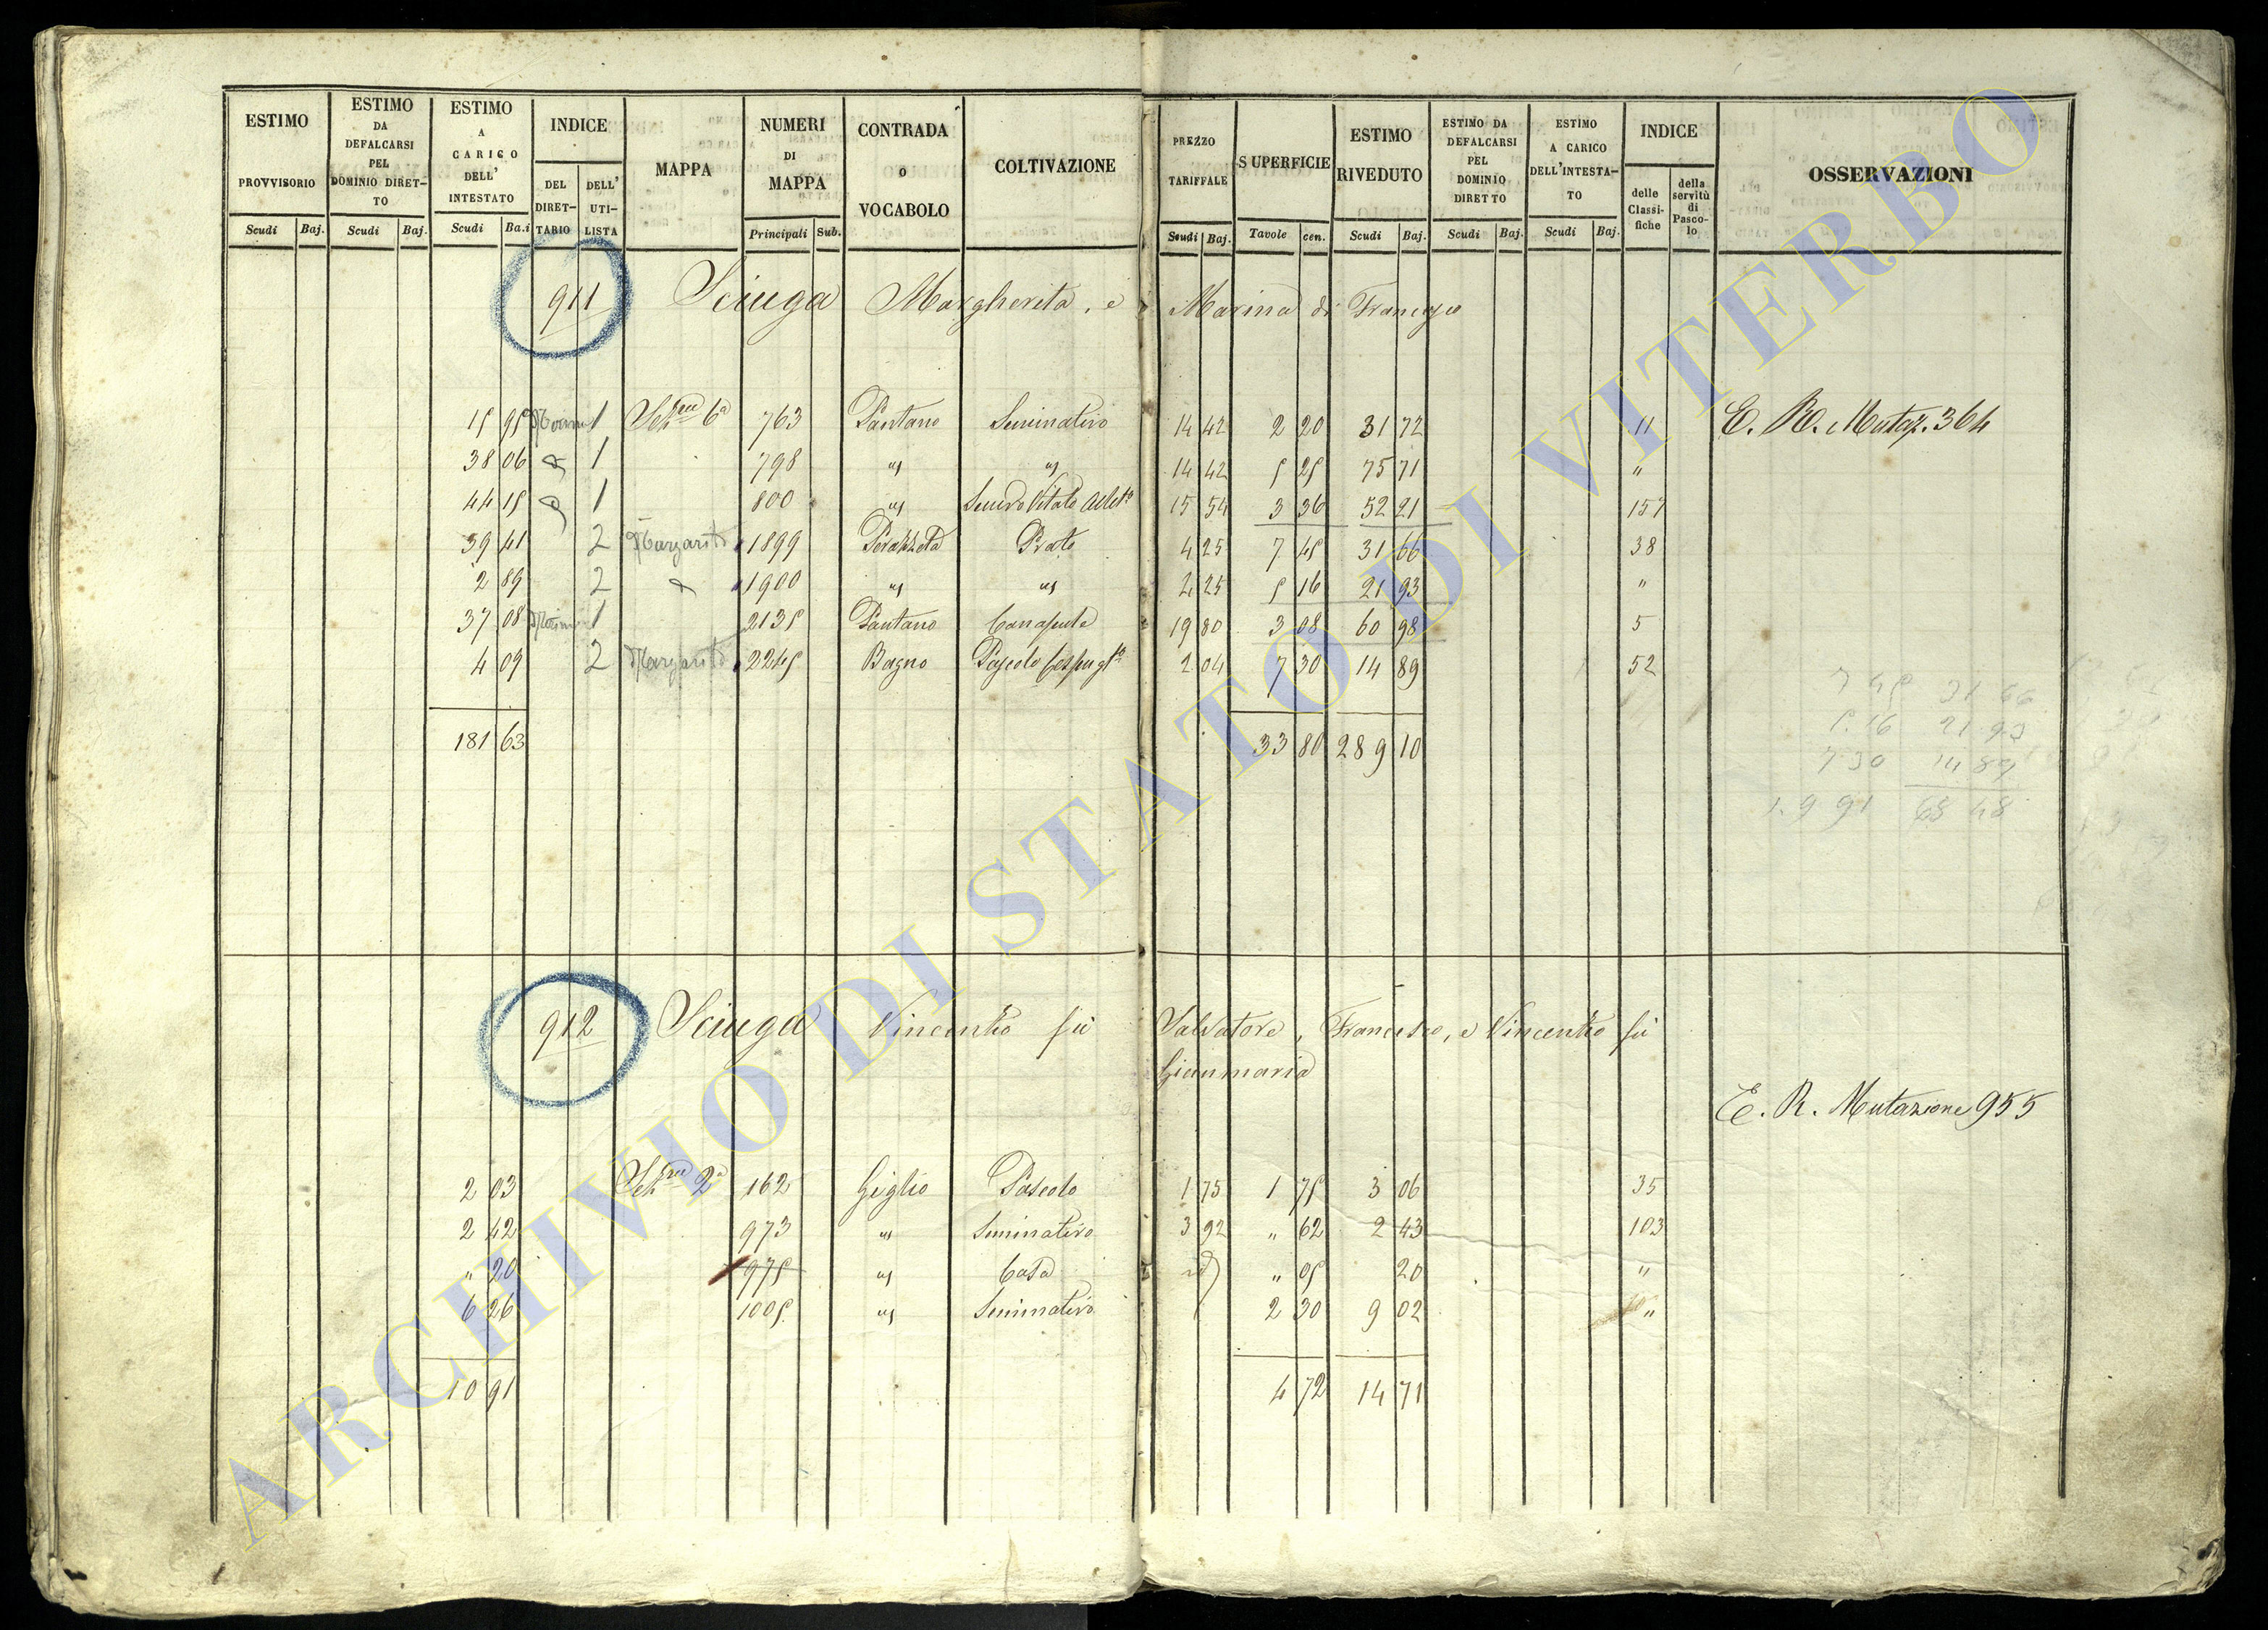 ESTIMO PROVVISORIO
ESTIMO DA DEFALCARSI PEL DOMINIO DIRETTO
ESTIMO A CARICO DELL' INTESTATO
INDICE
DEL DIRETTARIO
DELL' UTILISTA
MAPPA
NUMERI DI MAPPA
CONTRADA O VOCABOLO
COLTIVAZIONE
PREZZO TARIFFALE
SUPERFICIE
ESTIMO RIVEDUTO
ESTIMO DA DEFALCARSI PEL DOMINIO DIRETTO
ESTIMO A CARICO DELL'INTESTATO
INDICE
delle Classifiche
della servitù di Pascolo
OSSERVAZIONI
Scudi Baj. Scudi Baj. Scudi Ba.i Principali Sub. Scudi Baj. Tavole cen. Scudi Baj. Scudi Baj. Scudi Baj.
911 Sciuga Margherita, e Marina di Francesco
15 95 1 Sez.ne 6a 763 Pantano Seminativo 14 42 2 20 31 72 11 E. R. Mutaz. 364
38 06 1 798 " " 14 42 5 25 75 71 "
44 15 1 800 " 15 54 3 36 52 21 157
39 41 2 Margarita 1899 Prato 4 25 7 45 31 66 38
2 89 2 1900 " " 4 25 5 16 21 93 "
37 08 1 2135 Pantano Canapule 19 80 3 08 60 98 5
4 09 2 Margarita 2245 Bagno Pascolo Cespugl.to 2 04 7 30 14 89 52
181 63 33 80 289 10
7 45 31 66
5.16 21 93
7 30 14 89
1.9 91 68 48
912 Sciuga Vincenzo fù Salvatore, Francesco, e Vincenzo fù
Gianmaria
E. R. Mutazione 955
2 03 Sez.ne 2a 162 Giglio Pascolo 1 75 1 75 3 06 35
2 42 973 " Seminativo 3 92 " 62 2 43 103
" 20 975 " Casa " 05 20 "
6 26 1005 " Seminativo 2 30 9 02 "
10 91 4 72 14 71
ARCHIVIO DI STATO DI VITERBO